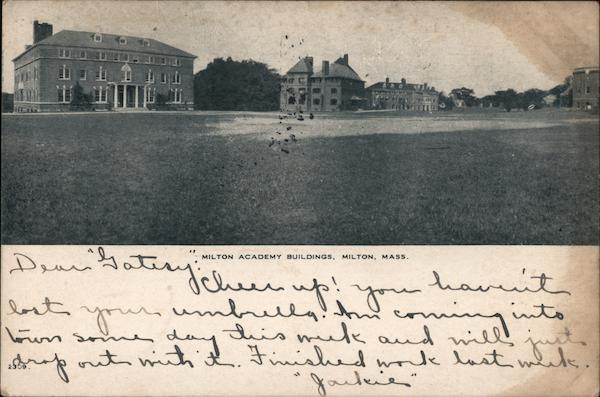 MILTON ACADEMY BUILDINGS, MILTON, MASS.
Dear "Gatesy",
Cheer up! you haven't
lost your umbrella. Am coming into
town some day this week and will just
drop out with it. Finished work last week.
"Jackie"
2309.